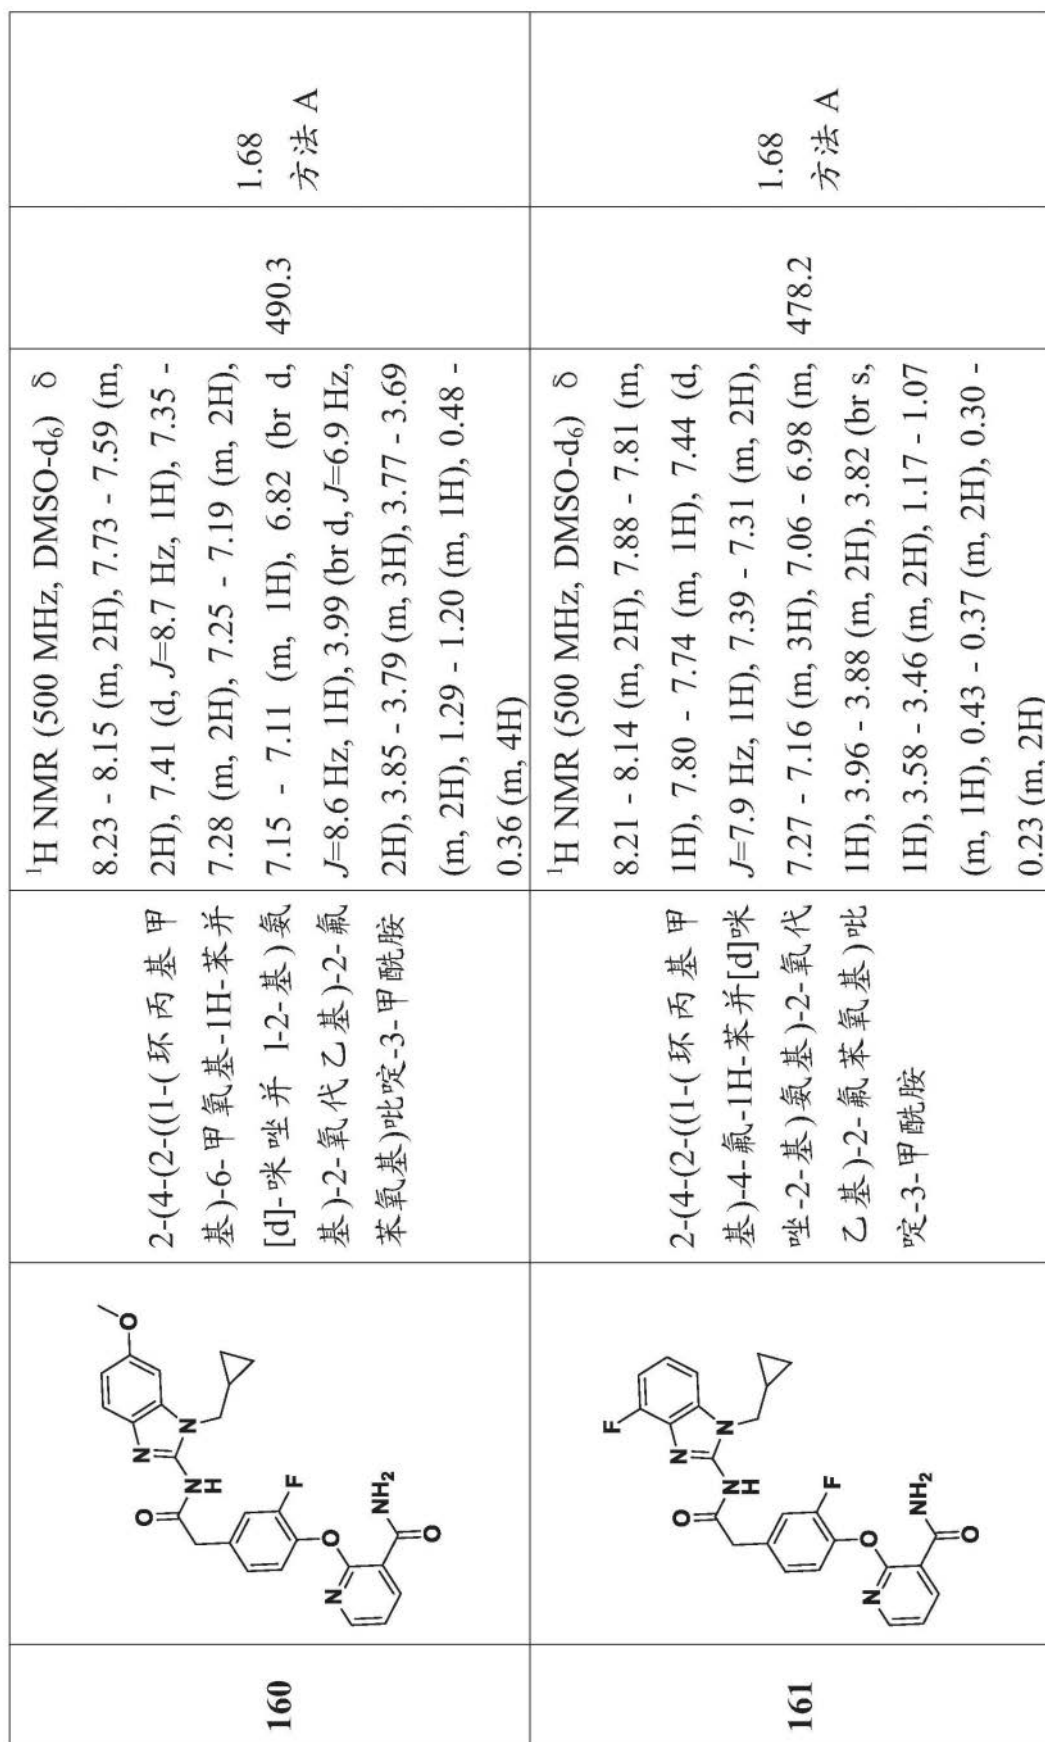 160
O
N
N
O
N
H
F
O
N
NH2
O
2-(4-(2-((1-(环丙基甲
基)-6-甲氧基-1H-苯并
[d]-咪唑并 1-2-基)氨
基)-2-氧代乙基)-2-氟
苯氧基)吡啶-3-甲酰胺
1H NMR (500 MHz, DMSO-d6) δ
8.23 - 8.15 (m, 2H), 7.73 - 7.59 (m,
2H), 7.41 (d, J=8.7 Hz, 1H), 7.35 -
7.28 (m, 2H), 7.25 - 7.19 (m, 2H),
7.15 - 7.11 (m, 1H), 6.82 (br d,
J=8.6 Hz, 1H), 3.99 (br d, J=6.9 Hz,
2H), 3.85 - 3.79 (m, 3H), 3.77 - 3.69
(m, 2H), 1.29 - 1.20 (m, 1H), 0.48 -
0.36 (m, 4H)
490.3
1.68
方法 A
161
F
N
N
O
N
H
F
O
N
NH2
O
2-(4-(2-((1-(环丙基甲
基)-4-氟-1H-苯并[d]咪
唑-2-基)氨基)-2-氧代
乙基)-2-氟苯氧基)吡
啶-3-甲酰胺
1H NMR (500 MHz, DMSO-d6) δ
8.21 - 8.14 (m, 2H), 7.88 - 7.81 (m,
1H), 7.80 - 7.74 (m, 1H), 7.44 (d,
J=7.9 Hz, 1H), 7.39 - 7.31 (m, 2H),
7.27 - 7.16 (m, 3H), 7.06 - 6.98 (m,
1H), 3.96 - 3.88 (m, 2H), 3.82 (br s,
1H), 3.58 - 3.46 (m, 2H), 1.17 - 1.07
(m, 1H), 0.43 - 0.37 (m, 2H), 0.30 -
0.23 (m, 2H)
478.2
1.68
方法 A